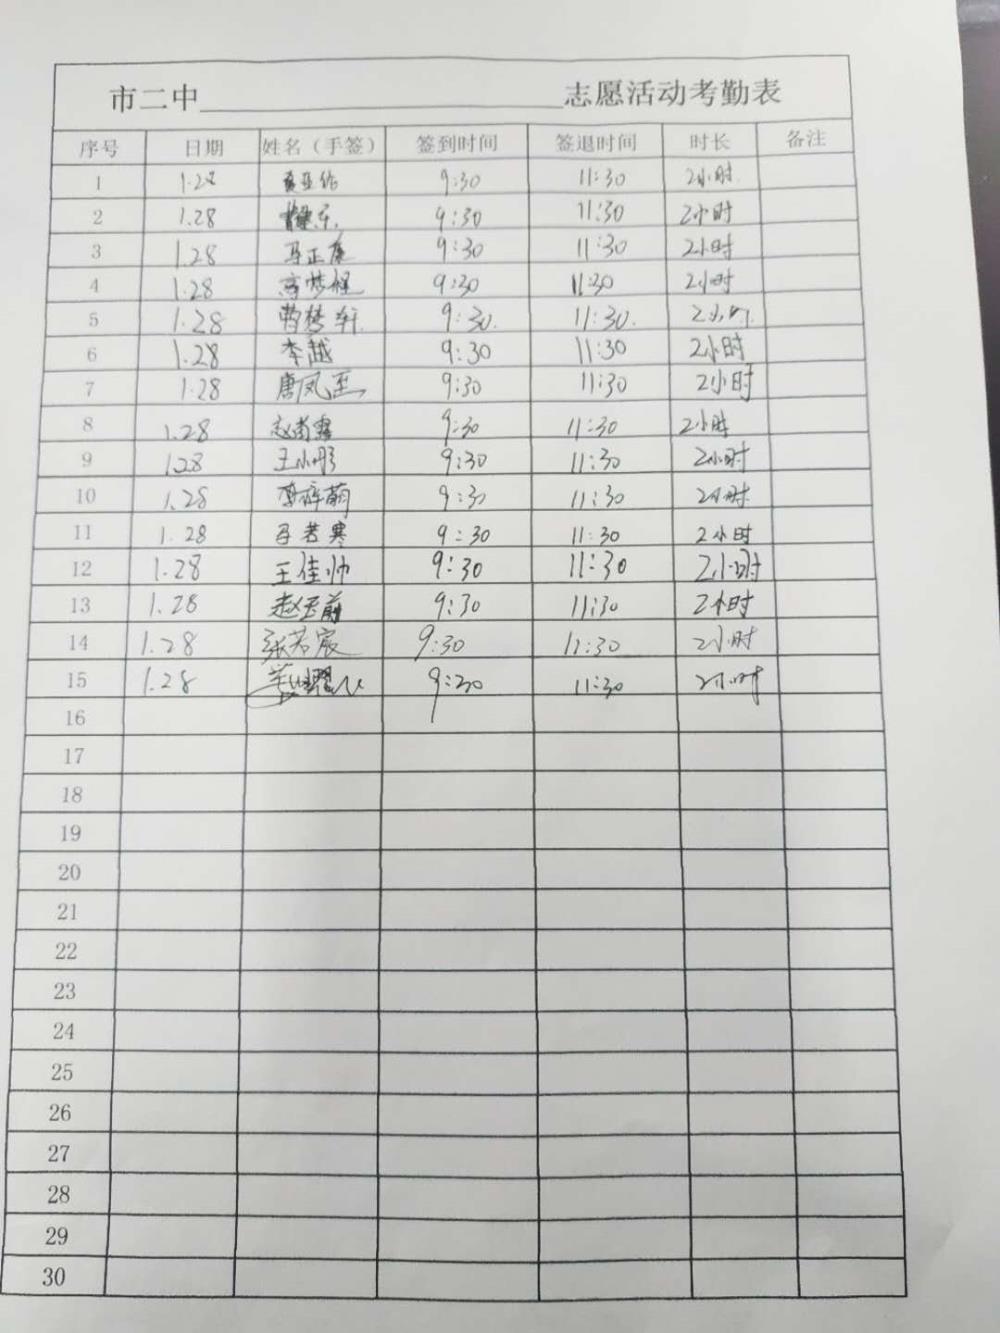 市二中____________________志愿活动考勤表
序号 日期 姓名（手签） 签到时间 签退时间 时长 备注
1 1.28 9:30 11:30 2小时
2 1.28 9:30 11:30 2小时
3 1.28 马正康 9:30 11:30 2小时
4 1.28 9:30 11:30 2小时
5 1.28 曹梦轩 9:30. 11:30. 2小时
6 1.28 李越 9:30 11:30 2小时
7 1.28 唐凤至 9:30 11:30 2小时
8 1.28 9:30 11:30 2小时
9 1.28 王小彤 9:30 11:30 2小时
10 1.28 9:30 11:30 2小时
11 1.28 若寒 9:30 11:30 2小时
12 1.28 王佳帅 9:30 11:30 2小时
13 1.28 9:30 11:30 2小时
14 1.28 张若宸 9:30 11:30 2小时
15 1.28 9:30 11:30 2小时
16
17
18
19
20
21
22
23
24
25
26
27
28
29
30